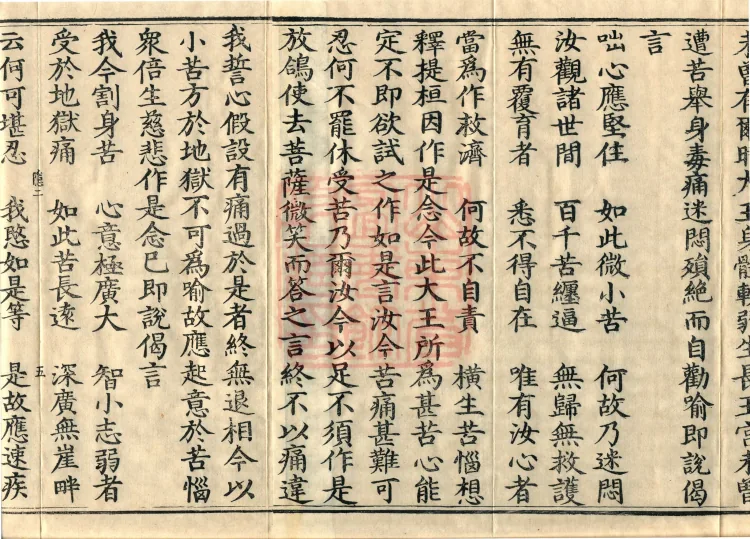 未曾有爾時大王身體軟弱生長王宮未曾
遭苦舉身毒痛迷悶殞絕而自勸喻即說偈
言
咄心應堅住 如此微小苦 何故乃迷悶
汝觀諸世間 百千苦纏逼 無歸無救護
無有覆育者 悉不得自在 唯有汝心者
當為作救濟 何故不自責 橫生苦惱想
釋提桓因作是念今此大王所為甚苦心能
定不即欲試之作如是言汝今苦痛甚難可
忍何不罷休受苦乃爾汝今以足不須作是
放鴿使去菩薩微笑而答之言終不以痛違
我誓心假設有痛過於是者終無退相今以
小苦方於地獄不可為喻故應起意於苦惱
眾倍生慈悲作是念已即說偈言
我今割身苦 心意極廣大 智小志弱者
受於地獄痛 如此苦長遠 深廣無崖畔
云何可堪忍 我愍如是等 是故應速疾
五